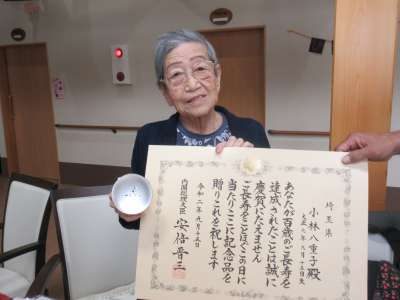 埼玉県
小林八重子殿
大正八年八月十三日生
あなたが百歳のご長寿を
達成されたことは誠に
慶賀にたえません
ご長寿をことほぐこの日に
当たりここに記念品を
贈りこれを祝します
令和二年九月十五日
内閣総理大臣 安倍晋三